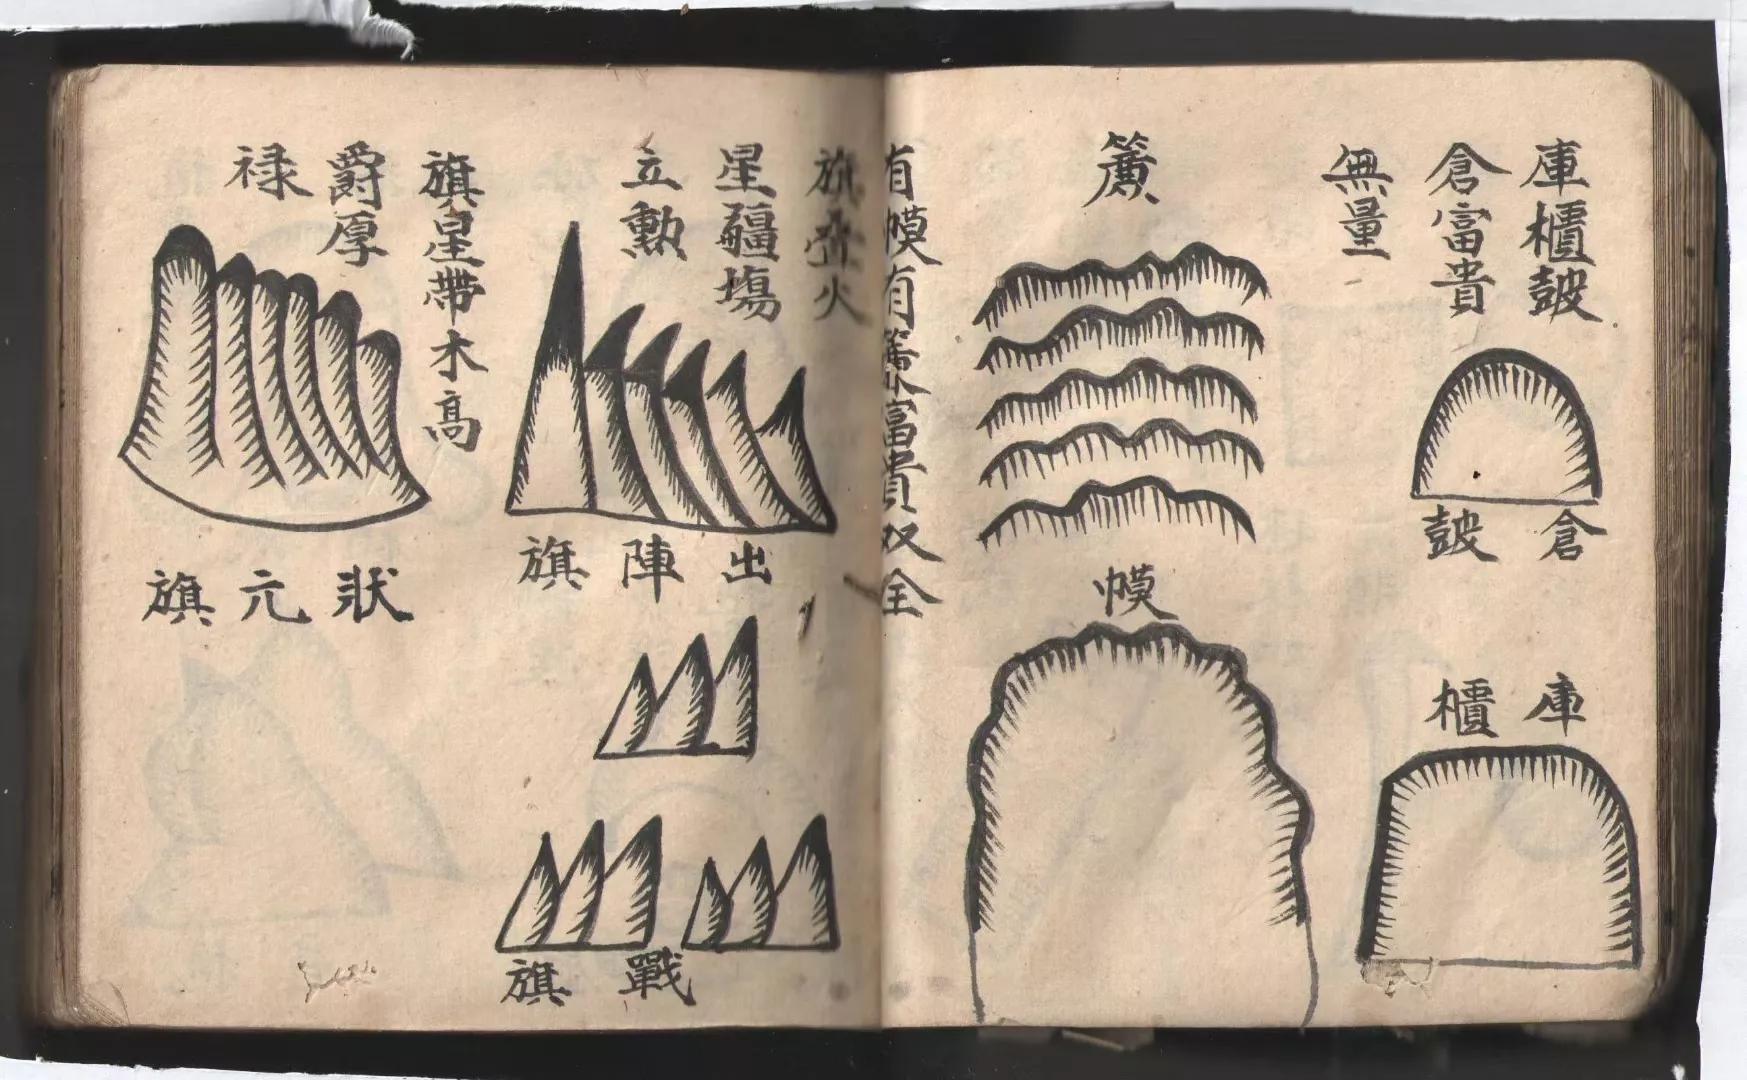 庫櫃皷
倉富貴
無量
倉皷
庫櫃
簾
幙
有幙有簾富貴双全
旗叠火
星疆塲
立勳
出陣旗
戰旗
旗星帶木高
爵厚
禄
狀元旗